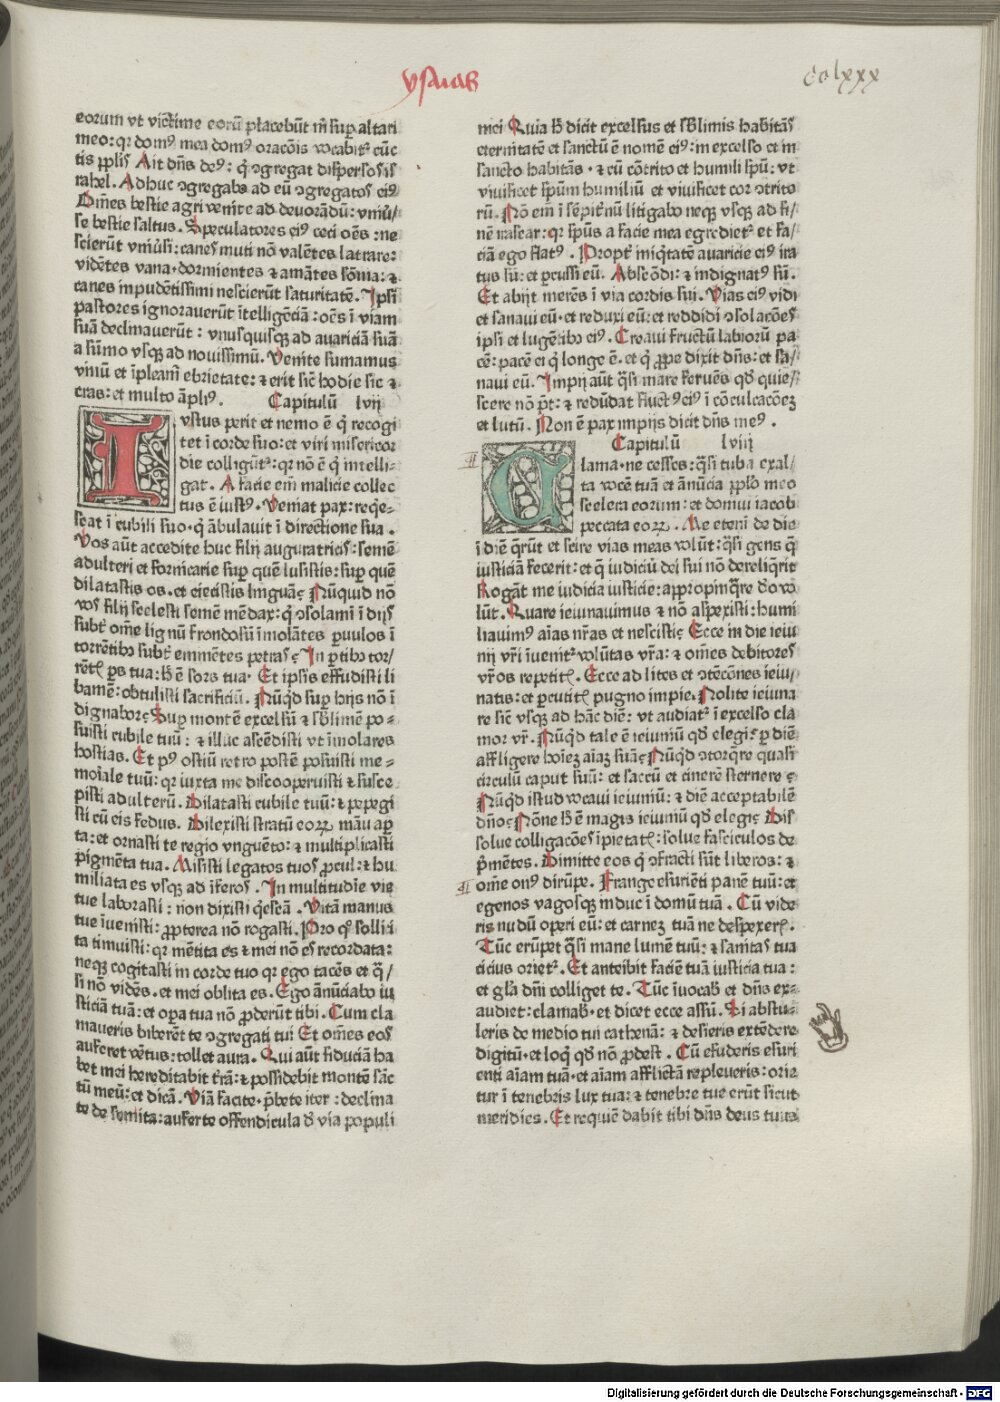 ysaias
cclxxx
eorum vt victime eorū placebūt m̄ suꝑ altari
meo: qr domꝰ mea domꝰ oracōis vocabit᷑ cūc
tis ppl̄is Ait dn̄s deꝰ: q̄ ꝯgregat dispersos is
rahel. Adhuc ꝯgregabo ad eū ꝯgregatos eiꝰ
Om̄es bestie agri venite ad deuorādū: vniu̇/
se bestie saltus. Speculatores eiꝰ ceci oēs: ne
scierūt vniu̇si: canes muti nō valētes latrare:
vidētes vana·dormientes ⁊ amātes sōnia: ⁊
canes inpudētissimi nescierūt saturitatē. Ipsi
pastores ignorauerūt ītelligēciā: oēs ī viam
suā declinauerūt: vnusquisqꝫ ad auariciā suā
a sūmo vsqꝫ ad nouissimū. Venite sumamus
vinū et īpleam̄ ebrietate: ⁊ erit sic̄ hodie sic ⁊
cras: et multo āpliꝰ. Capitulū lvij
Ivstus perit et nemo ē q̇ recogi
tet ī corde suo: et viri misericor
die colligūt᷑: qr nō ē q̇ intelli-
gat. A facie em̄ malicie collec
tus ē iustꝰ. Veniat pax: reqe-
scat ī cubili suo·q̇ ābulauit ī directione sua.
Vos aūt accedite huc filij auguratricis: semē
adulteri et fornicarie suꝑ quē lusistis: suꝑ quē
dilatastis os. et eiecistis linguāꝫ Nūquid nō
vos filij scelesti semē mēdax: q̇ ꝯsolami ī dijs
subt᷑ om̄e lignū frondosū īmolātes ꝑuulos ī
torrētibꝯ subt᷑ emmētes petras ꝫ In ꝑtibꝯ tor/
rēt᷑ ꝑs tua: h̄ ē sors tua· Et ipsis effudisti li
bamē: obtulisti sacrificiū. Nūq̇d suꝑ hijs nō ī
dignabor ꝫ Suꝑ montē excelsū ⁊ sb̄limē po-
suisti cubile tuū: ⁊ illuc ascēdisti vt īmolares
hostias. Et pꝰ ostiū retro postē posuisti me-
moriale tuū: qr iuxta me discooperuisti ⁊ susce
pisti adulterū. Dilatasti cubile tuū: ⁊ pepegi
sti cū eis fedus. Dilexisti stratū eoꝝ māu aꝑ
ta: et ornasti te regio vnguēto: ⁊ multiplicasti
pigmēta tua. Misisti legatos tuos ꝓcul: ⁊ hu
miliata es vsqꝫ ad īferos. In multitudīe vie
tue laborasti: non dixisti q̇escā. Vitā manus
tue īuenisti: ꝓpterea nō rogasti. Pro q̊ sollici
ta timuisti: qr mētita es ⁊ mei nō es recordata:
neqꝫ cogitasti in corde tuo qr ego tacēs et q̄si/
si nō vidēs. et mei oblita es. Ego ānūciabo iu
sticiā tuā: et oꝑa tua nō ꝓderūt tibi. Cum cla
maueris liberēt te ꝯgregati tui Et om̄es eos
auferet vētus: tollet aura. Qui aūt fiduciā ha
bet mei hereditabit t̄rā: ⁊ possidebit montē sāc
tū meū: et dicā. Viā facite·p̄bete iter: declina
te de semita: auferte offendicula d̄ via populi
mei Quia h̄ dicit excelsus et sb̄limis habitās
eternitatē et sanctū ē nomē eiꝰ: in excelso et in
sancto habitās·⁊ cū cōtrito et humili spū: vt
viuificet spūm humiliū et viuificet cor ꝯtrito
rū. Nō em̄ ī sēpit᷑nū litigabo neqꝫ vsqꝫ ad fi/
nē irascar: qr spūs a facie mea egrediet᷑ et fa/
ciā ego flatꝰ. Propt᷑ iniq̇tatē auaricie eiꝰ ira
tus sū: et ꝑcussi eū. Abscōdi: ⁊ indignatꝰ sū.
Et abijt merēs ī via cordis sui. Vias eiꝰ vidi
et sanaui eū·et reduxi eū: et reddidi ꝯsolacōes
ipsi et lugētibꝯ eiꝰ. Creaui fructū labiorū pa
cē: pacē ei q̇ longe ē. et q̇ ꝓpe dixit dn̄s: et sa/
naui eū. Impij aūt q̄si mare feruēs qd̄ quie/
scere nō pt̄: ⁊ redūdāt fluctꝰ eiꝰ ī cōculcacōeꝫ
et lutū. Non ē pax impijs dicit dn̄s meꝰ.
Capitulū lviij
Clama·ne cesses: q̄si tuba exal/
ta vocē tuā et ānūcia ppl̄o meo
scelera eorum: et domui iacob
peccata eoꝝ. Me etenī de die
ī diē q̄rūt et scire vias meas volūt: q̄si gens q̄
iusticiā fecerit: et q̄ iudiciū dei sui nō dereliq̇rit
Rogāt me iudicia iusticie: appropinq̄re deo vo
lūt. Quare ieiunauimus ⁊ nō aspexisti: humi
liauimꝰ aīas nr̄as et nescisti ꝫ Ecce in die ieiu
nij vr̄i īuenit᷑ volūtas vr̄a: ⁊ om̄es debitores
vr̄os repetit᷑. Ecce ad lites et ꝯtēcōnes ieiu/
natis: et ꝑcutit᷑ pugno impie. Nolite ieiuna
re sic̄ vsqꝫ ad hāc diē: vt audiat᷑ ī excelso cla
mor vr̄. Nūq̇d tale ē ieiuniū qd̄ elegi: ꝑ diē
affligere hoīeꝫ aīaꝫ suāꝫ Nūq̇d ꝯtorq̄re quasi
circulū caput suū: et saccū et cinerē sternere ꝫ
Nūq̇d istud vocaui ieiuniū: ⁊ diē acceptabilē
dn̄o ꝫ Nōne h̄ ē magis ieiuniū qd̄ elegi ꝫ Dis
solue colligacōes īpietat᷑: solue fasciculos de
p̄mētes. Dimitte eos q̇ ꝯfracti sūt liberos: ⁊
om̄e onꝰ dirūpe. Frange esuriēti panē tuū: et
egenos vagosqꝫ induc ī domū tuā. Cū vide
ris nudū operi eū: et carneꝫ tuā ne despexer᷑.
Tūc erūpet q̄si mane lumē tuū: ⁊ sanitas tua
cicius oriet᷑. Et anteibit faciē tuā iusticia tua:
et gl̄a dn̄i colliget te. Tūc īuocab᷑ et dn̄s ex-
audiet: clamab᷑ et dicet ecce assū. Si abstu-
leris de medio tui cathenā: ⁊ desieris extēdere
digitū·et loq̇ qd̄ nō ꝓdest. Cū effuderis esuri
enti aīam tuā·et aīam afflictā repleueris: orie
tur ī tenebris lux tua: ⁊ tenebre tue erūt sicut
meridies. Et requiē dabit tibi dn̄s deus tuus
Digitalisierung gefördert durch die Deutsche Forschungsgemeinschaft - DFG